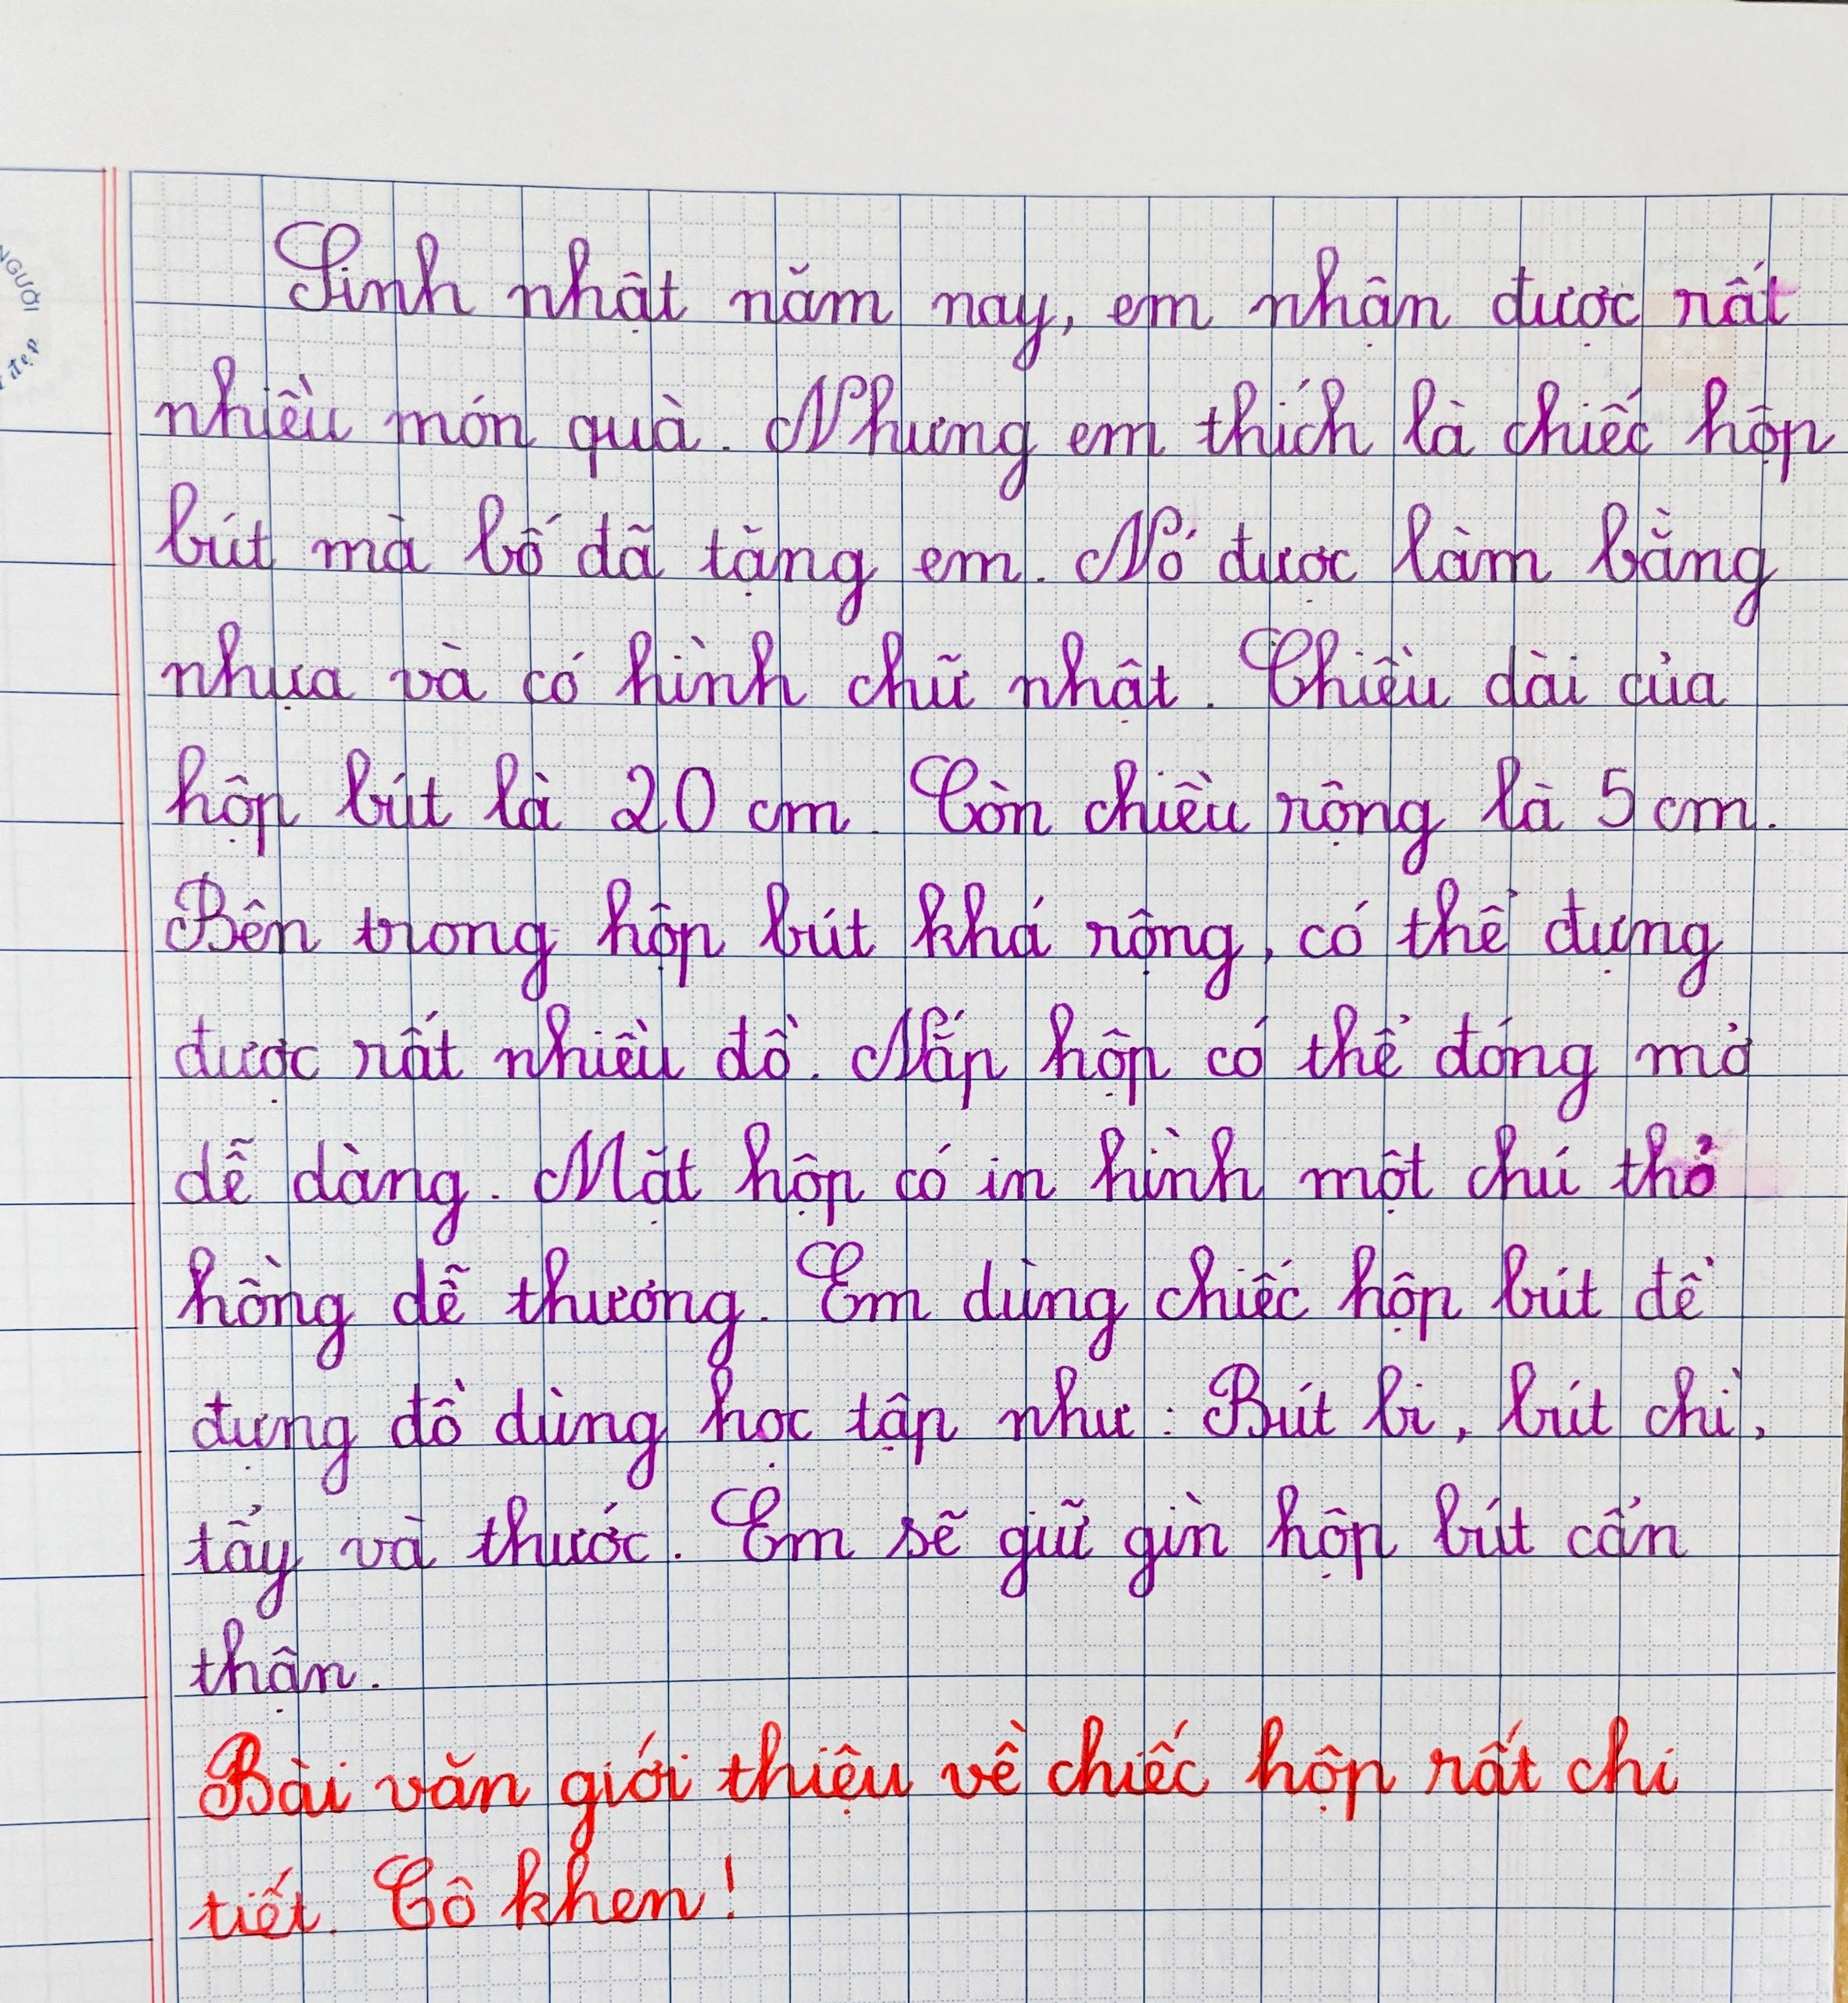 Sinh nhật năm nay, em nhận được rất
nhiều món quà. Nhưng em thích là chiếc hộp
bút mà bố đã tặng em. Nó được làm bằng
nhựa và có hình chữ nhật. Chiều dài của
hộp bút là 20 cm. Còn chiều rộng là 5 cm.
Bên trong hộp bút khá rộng, có thể đựng
được rất nhiều đồ. Nắp hộp có thể đóng mở
dễ dàng. Mặt hộp có in hình một chú thỏ
hồng dễ thương. Em dùng chiếc hộp bút để
đựng đồ dùng học tập như: Bút bi, bút chì,
tẩy và thước. Em sẽ giữ gìn hộp bút cẩn
thận.
Bài văn giới thiệu về chiếc hộp rất chi
tiết. Cô khen!
NGƯỜI
đẹp